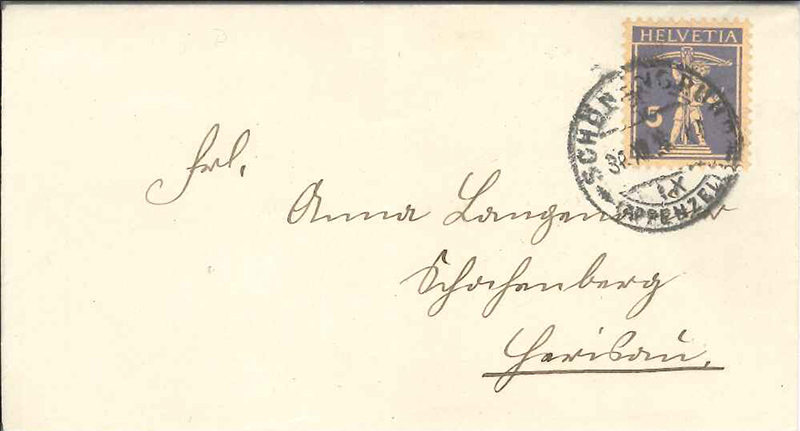 HELVETIA
5
SCHÖNENGRUND
IX
(APPENZELL)
Frl.
Anna
Schachenberg
Herisau.